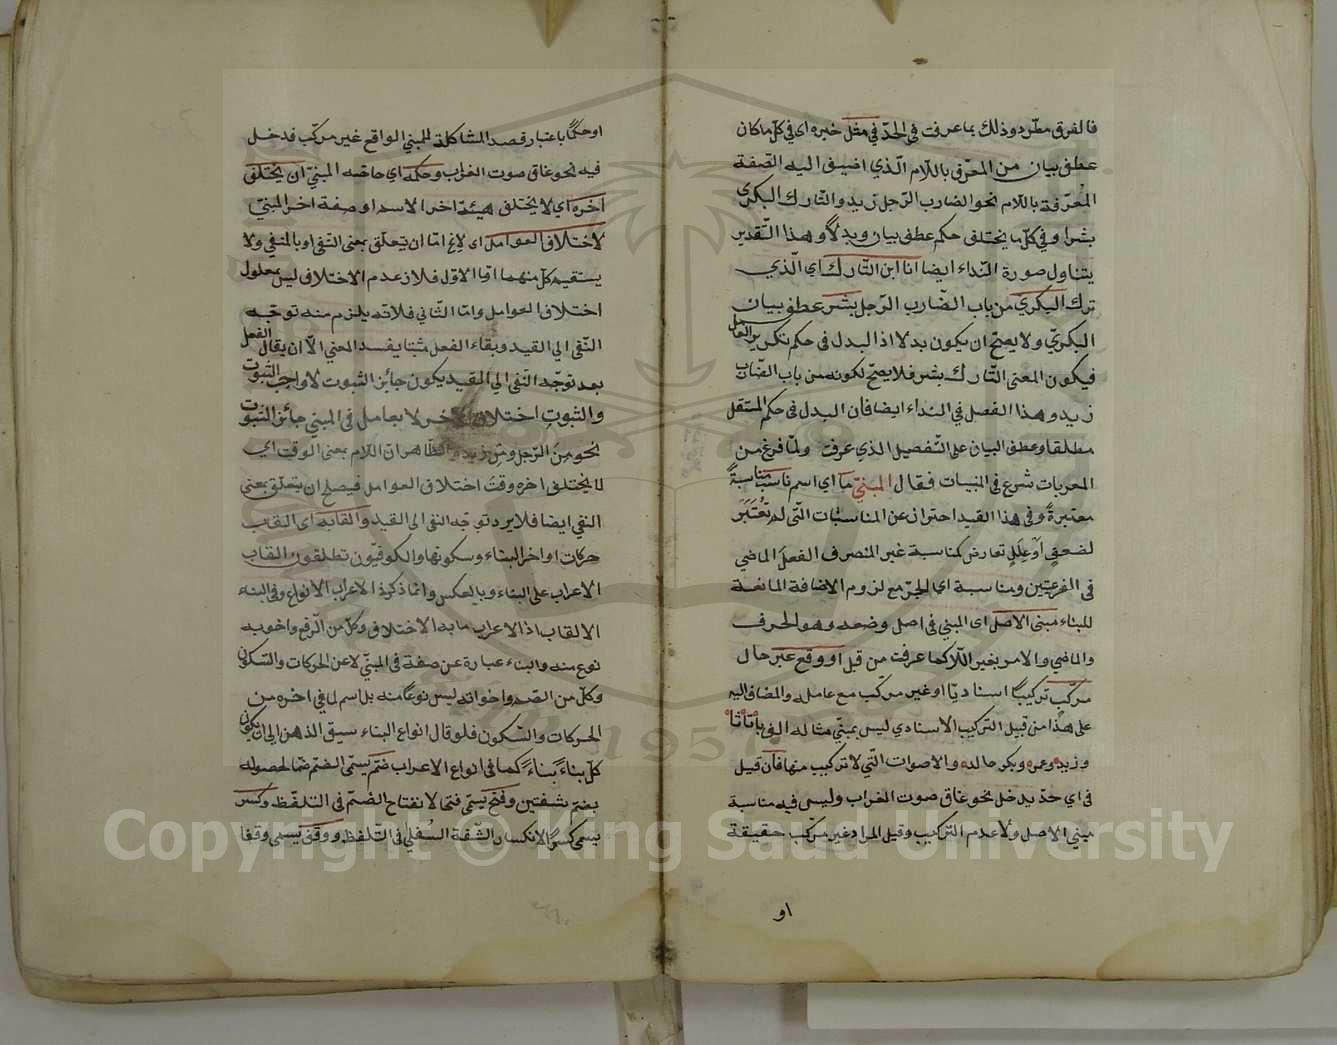 فالفرق مطرد وذلك بما عرفت في الحدّ في مثل خبره اي في كلّ ما كان
عطف بيان من المعرّف باللّام الّذي اضيف اليه الصّفة
المُعرّفة باللّام نحو الضارب الرّجل زيد والتّارك البكري
بشر او في كلّ ما يختلف حكم عطف بيان وبدلاً وهذا التّقدير
يتناول صورة النّداء ايضا انا ابن التّارك اي الّذي
ترك البكري من باب الضّارب الرّجل بشر عطف بيان
البكريّ ولا يصحّ ان يكون بدلا اذ البدل في حكم تكرير العامل
فيكون المعنى التّارك بشر فلا يصحّ لكونه من باب الضّارب
زيد وهذا الفصل في النداء ايضا فان البدل في حكم المستقل
مطلقا وعطف البيان على التّفصيل الذي عرفت ولمّا فرغ من
المعربات شرع في المبنيات فقال المبنيّ ما اي اسم ناسب مناسبةً
معتبرةً وفي هذا القيد احتراز عن المناسبات التّي لم تُعْتَبَر
لضعفٍ اَوْ عِلَلٍ تعارض كمناسبة غير المنصرف الفعلَ الماضي
في الفرعيّتين ومناسبة اىّ الجرّ مع لزوم الاضافة المانعة
للبناء مبنى الاصل اى المبني في اصل وضعه وهو الحرف
والماضي والامر بغير اللّام كما عرفت من قبل او وقع غير حال
مركّب تركيباً اسناديّا او غير مركّب مع عامله والمضاف اليه
على هذا من قبيل التركيب الاسنادي ليس بمبنيّ مثاله الف با تا ثا
وزيد وعمرو وبكر خالد والاصوات التّي لا تركيب منها فان قيل
في اي حدّ يدخل نحو غاق صوت الغراب وليس فيه مناسبة
مبني الاصل ولا عدم التركيب وقيل المراد غير مركّب حقيقة
او
او حكماً باعتبار قصد المشاكلة للمبني الواقع غير مركّب فدخل
فيه نحو غاق صوت الغراب وحكمه اي خاصّه المبنيّ ان لا يختلف
آخره اي لا يختلف هيئة اخر الاسم او صفة اخر المبنيّ
لاختلاف العوامل اى لانه امّا ان يتعلّق بمعنى النّفى او بالمنفي ولا
يستقيم كلّ منهما امّا الاوّل فلانّ عدم الاختلاف ليس بمعلول
اختلاف العوامل وامّا الثّاني فلانّه يلزم منه توجّه
النّفى الى القيد وبقاء الفعل مثبتا يفسد المعنى الاّ ان يقال الفعل
بعد توجّه النّفى الى المقيد يكون جائز الثبوت لا واجب الثّبوت
والثبوت اختلاف الآخر لا بعامل في المبني جائز الثّبوت
نحو مِنَ الرّجل ومِن زيد والظّاهر انّ اللّام بمعنى الوقت اى
لا يختلف اخره وقتَ اختلاف العوامل فيصلح ان يتعلّق بمعنى
النّفى ايضا فلا يرد توجّه النّفى الى القيد والقابه اى القاب
حركات اواخر البناء وسكونها والكوفيّون تطلقون القاب
الاعراب على البناء وبالعكس وانّما ذكر في الاعراب الانواع وفي البناء
الالقاب اذ الاعراب ما به الاختلاف وكلّ من الرّفع واخويه
نوع منه والبناء عبارة عن صفة في المبنيّ لا عن الحركات والسّكون
وكلّ من الضّم واخواته ليس نوعاً منه بل اسم لما في اخره من
الحركات والسّكون فلو قال انواع البناء سبق الذهن الى ان يكون
كلّ بناءً بناءً كما في انواع الاعراب ضمّ يسمّى الضّم ضمّا لحصوله
بضمّ شفتين وفتح يسمّى فتحا لانفتاح الضّم في التلفّظ وكسر
يسمى كسراً لانكسار الشّفة السُفلي في التّلفّظ ووقف يسمى وقفا
Copyright © King Saud University
1957